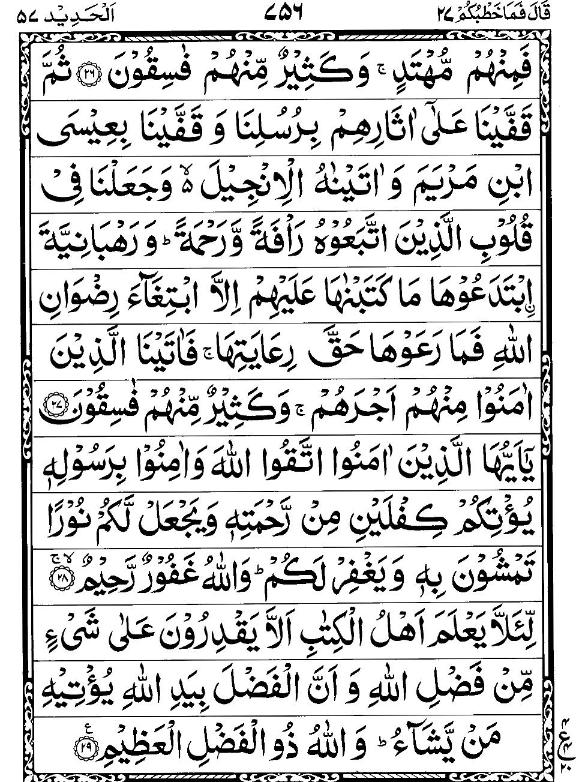 قَالَ فَمَا خَطْبُكُمْ ٢٧ ٧٥٦ اَلْحَدِيْد ٥٧
فَمِنْهُمْ مُّهْتَدٍ ۚ وَكَثِيْرٌ مِّنْهُمْ فٰسِقُوْنَ ﴿٢٦﴾ ثُمَّ
قَفَّيْنَا عَلٰٓى اٰثَارِهِمْ بِرُسُلِنَا وَ قَفَّيْنَا بِعِيْسَى
ابْنِ مَرْيَمَ وَ اٰتَيْنٰهُ الْاِنْجِيْلَ ۙ۬ وَجَعَلْنَا فِيْ
قُلُوْبِ الَّذِيْنَ اتَّبَعُوْهُ رَاْفَةً وَّرَحْمَةً ؕ وَ رَهْبَانِيَّةَ
ۨابْتَدَعُوْهَا مَا كَتَبْنٰهَا عَلَيْهِمْ اِلَّا ابْتِغَآءَ رِضْوَانِ
اللّٰهِ فَمَا رَعَوْهَا حَقَّ رِعَايَتِهَا ۚ فَاٰتَيْنَا الَّذِيْنَ
اٰمَنُوْا مِنْهُمْ اَجْرَهُمْ ۚ وَكَثِيْرٌ مِّنْهُمْ فٰسِقُوْنَ ﴿٢٧﴾
يٰۤاَيُّهَا الَّذِيْنَ اٰمَنُوا اتَّقُوا اللّٰهَ وَاٰمِنُوْا بِرَسُوْلِهٖ
يُؤْتِكُمْ كِفْلَيْنِ مِنْ رَّحْمَتِهٖ وَيَجْعَلْ لَّكُمْ نُوْرًا
تَمْشُوْنَ بِهٖ وَيَغْفِرْ لَكُمْ ؕ وَاللّٰهُ غَفُوْرٌ رَّحِيْمٌ ﴿٢٨﴾ ۙۚ
لِّئَلَّا يَعْلَمَ اَهْلُ الْكِتٰبِ اَلَّا يَقْدِرُوْنَ عَلٰى شَيْءٍ
مِّنْ فَضْلِ اللّٰهِ وَ اَنَّ الْفَضْلَ بِيَدِ اللّٰهِ يُؤْتِيْهِ
مَنْ يَّشَآءُ ؕ وَ اللّٰهُ ذُو الْفَضْلِ الْعَظِيْمِ ﴿٢٩﴾ ع